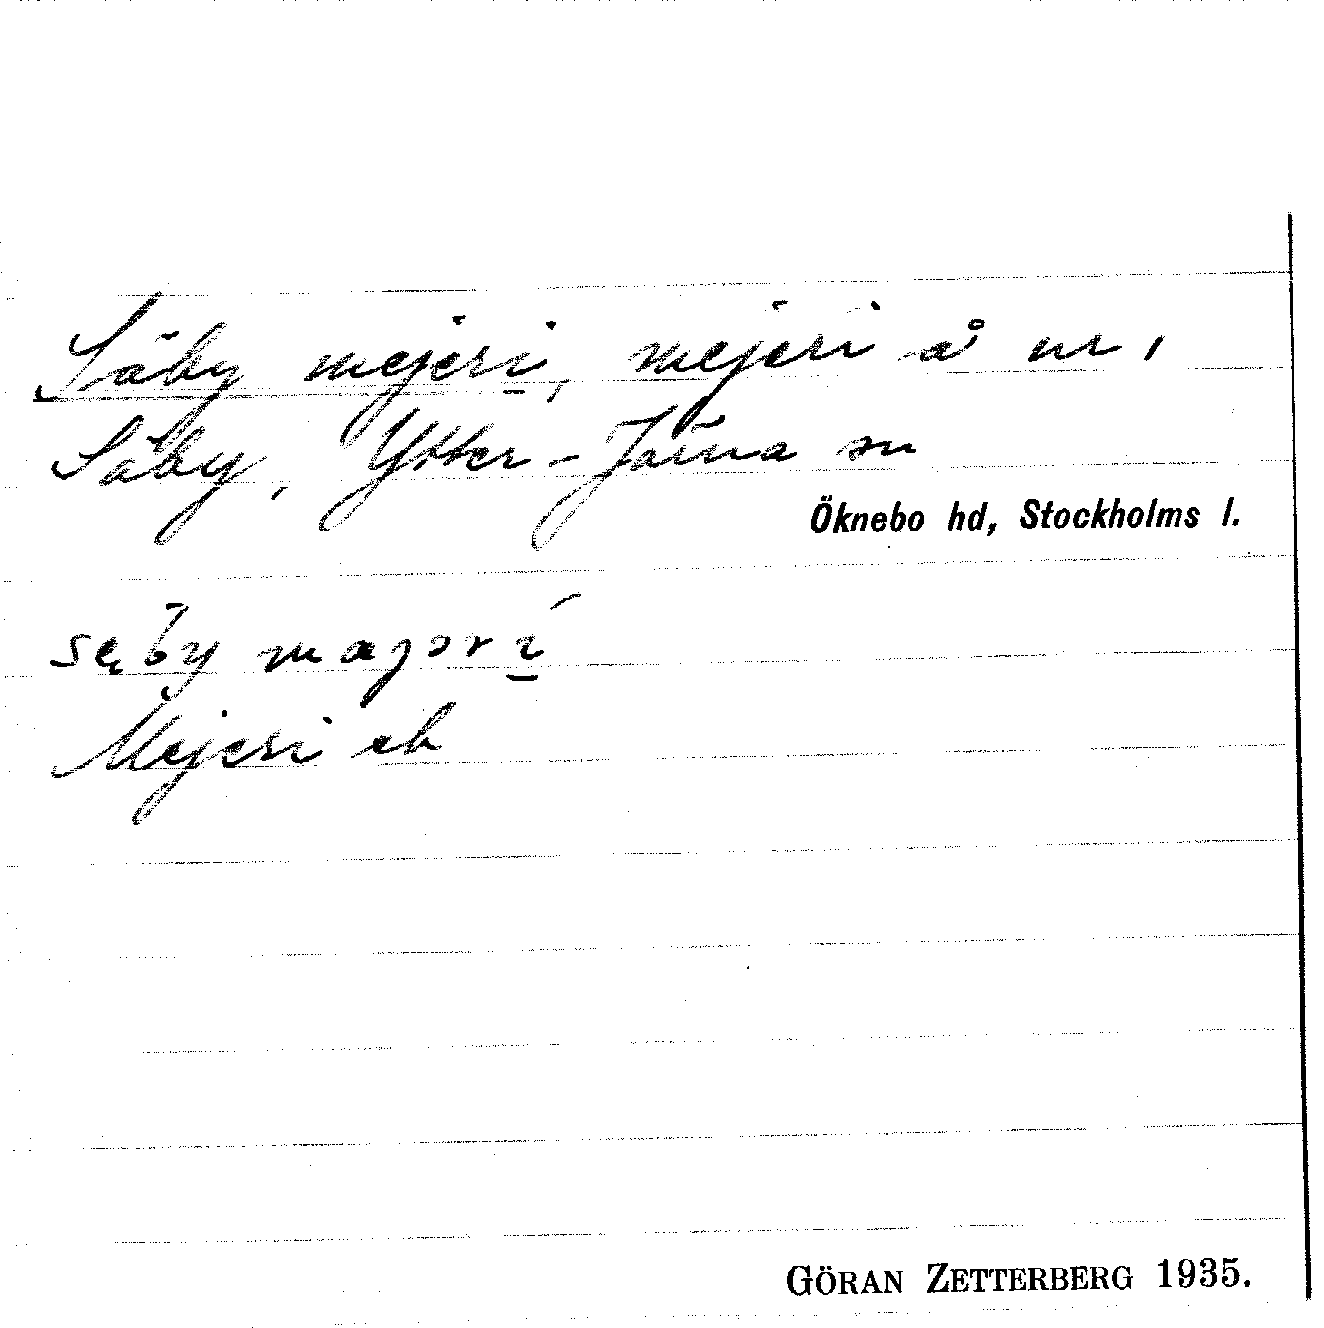 Säby mejeri, mejeri å nr 1
Säby, Ytter-Järna sn
Öknebo hd, Stockholms l.
Mejeri eb
GÖRAN ZETTERBERG 1935.